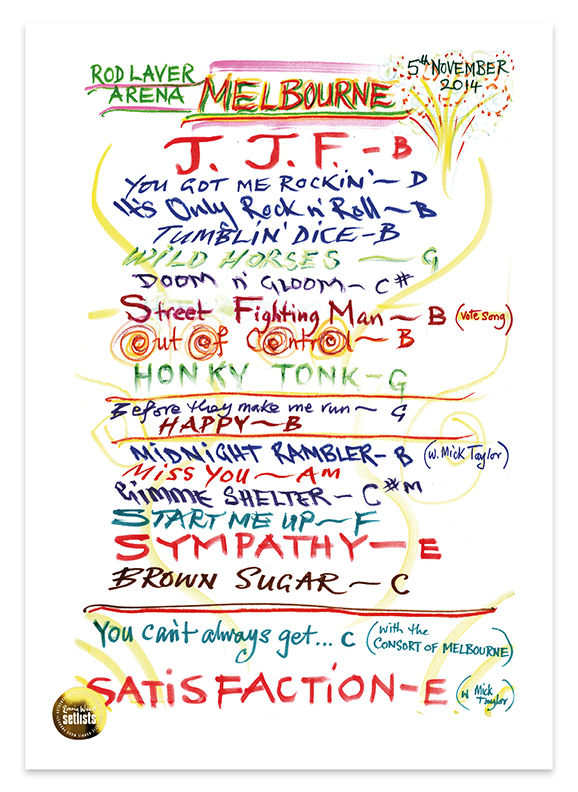 ROD LAVER
ARENA
MELBOURNE
5th NOVEMBER
2014
J. J. F. - B
YOU GOT ME ROCKIN' ~ D
It's Only Rock n' Roll ~ B
TUMBLIN' DICE - B
WILD HORSES ~ G
DOOM N' GLOOM ~ C#
Street Fighting Man ~ B (Vote Song)
Out of Control - B
HONKY TONK - G
Before they make me run ~ G
HAPPY ~ B
MIDNIGHT RAMBLER - B (w. Mick Taylor)
MISS YOU ~ AM
GIMME SHELTER - C#M
START ME UP ~ F
SYMPATHY - E
BROWN SUGAR ~ C
You can't always get... C (with the
CONSORT OF MELBOURNE)
SATiSFACTiON - E (w Mick
Taylor)
Ronnie Wood
setlists